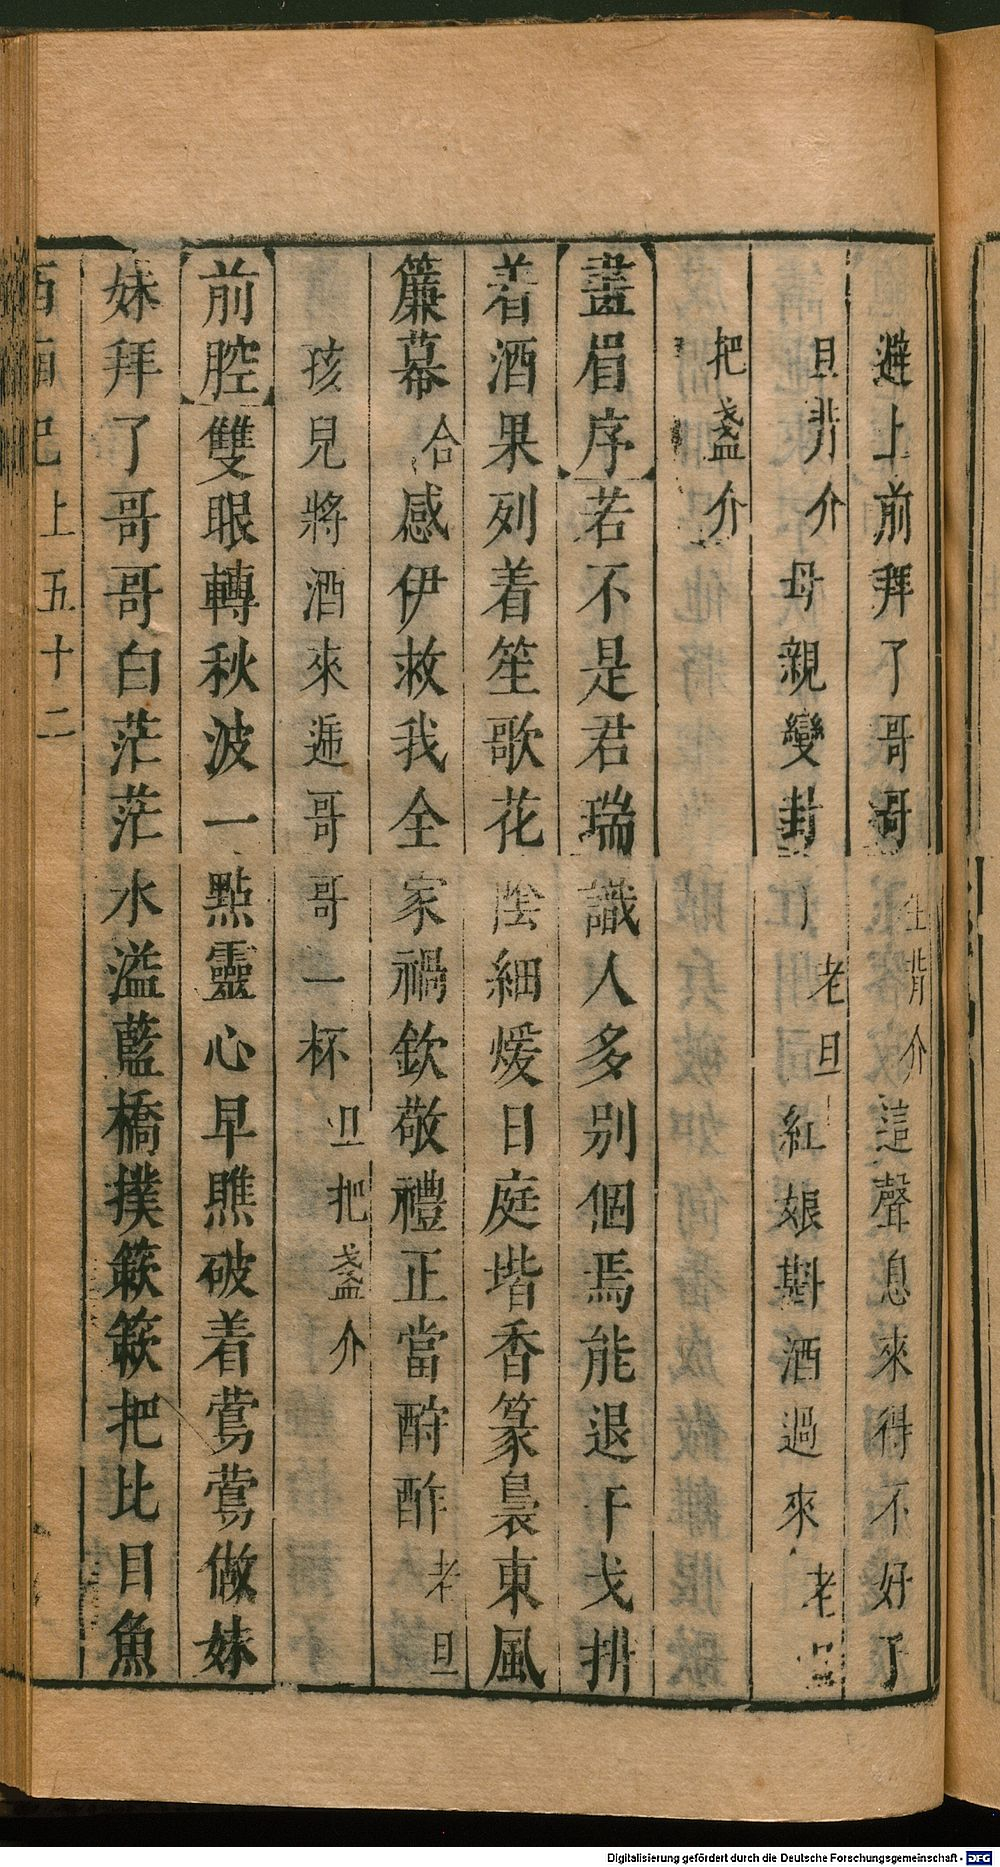 避上前拜了哥哥生背介這聲息來得不好了
旦背介母親變卦了老旦紅娘斟酒過來老旦
把盞介
畫眉序若不是君瑞識人多別個焉能退干戈排
着酒果列着笙歌花陰細煖日庭堦香篆裊東風
簾幕合感伊救我全家禍欽敬禮正當酧酢老旦
孩兒將酒來遞哥哥一杯旦把盞介
前腔雙眼轉秋波一點靈心早瞧破着鶯鶯做妹
妹拜了哥哥白茫茫水溢藍橋撲簌簌把比目魚
西廂記上五十二
Digitalisierung gefördert durch die Deutsche Forschungsgemeinschaft - DFG